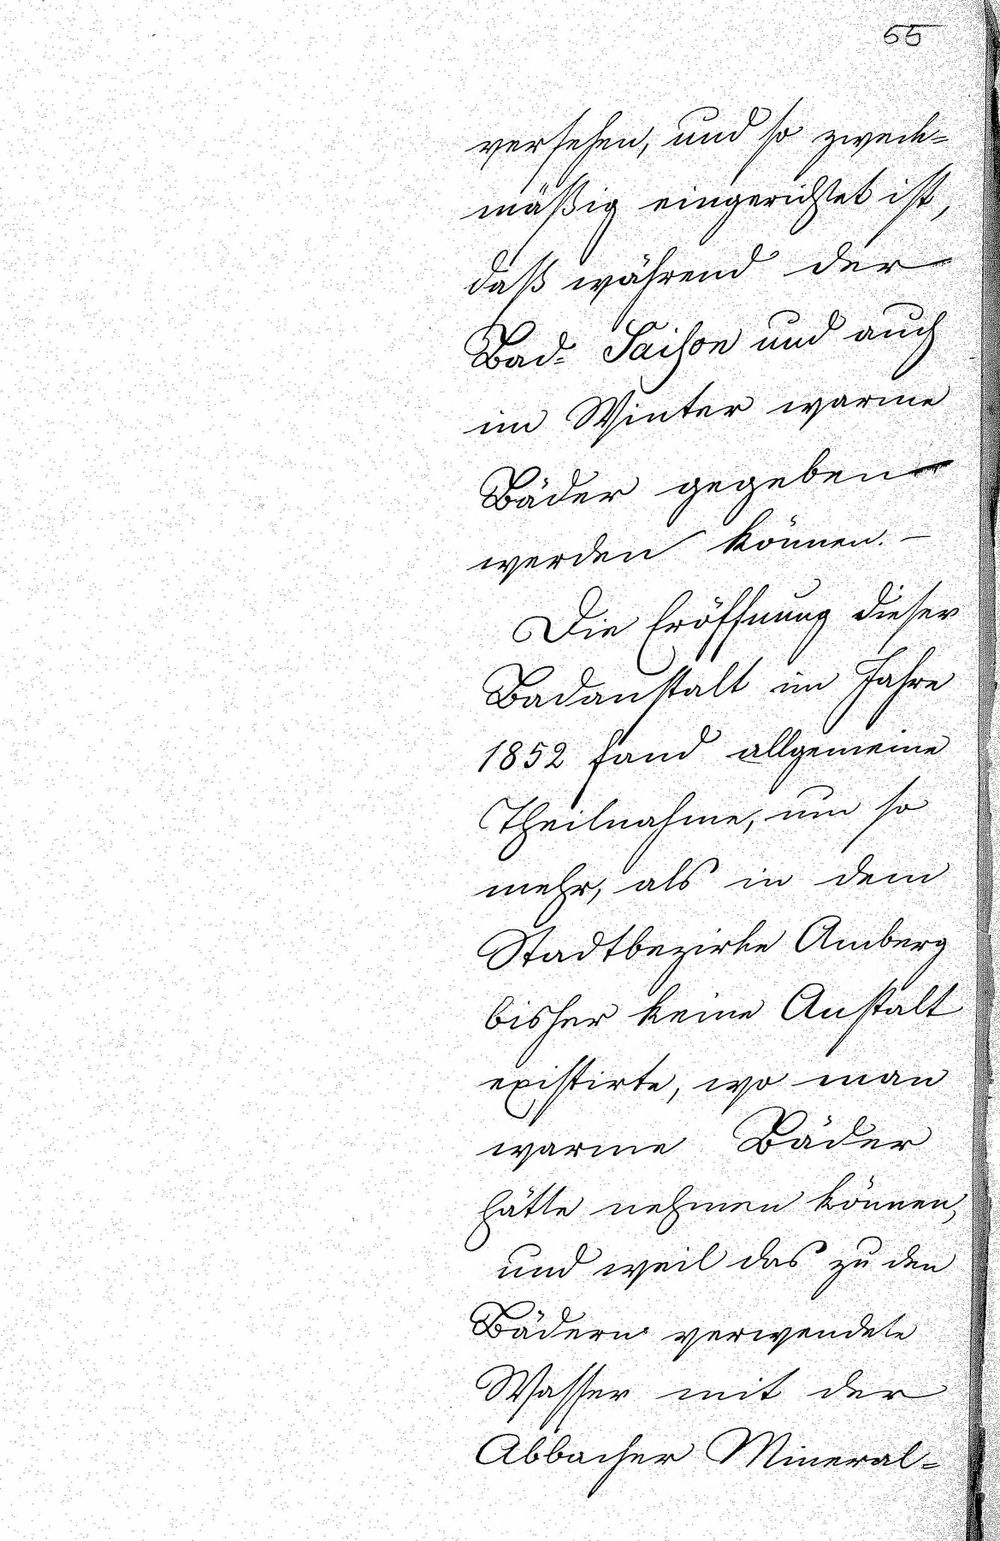 55
versehen, und so zweck=
mäßig eingerichtet ist,
daß während der
Bad= Saison und auch
im Winter warme
Bäder gegeben
werden können. —
Die Eröffnung dieser
Badanstalt im Jahre
1852 fand allgemeine
Theilnahme, um so
mehr, als in dem
Stadtbezirke Amberg
bisher keine Anstalt
existirte, wo man
warme Bäder
hätte nehmen können,
und weil das zu den
Bädern verwendete
Wasser mit der
Abbacher Mineral=